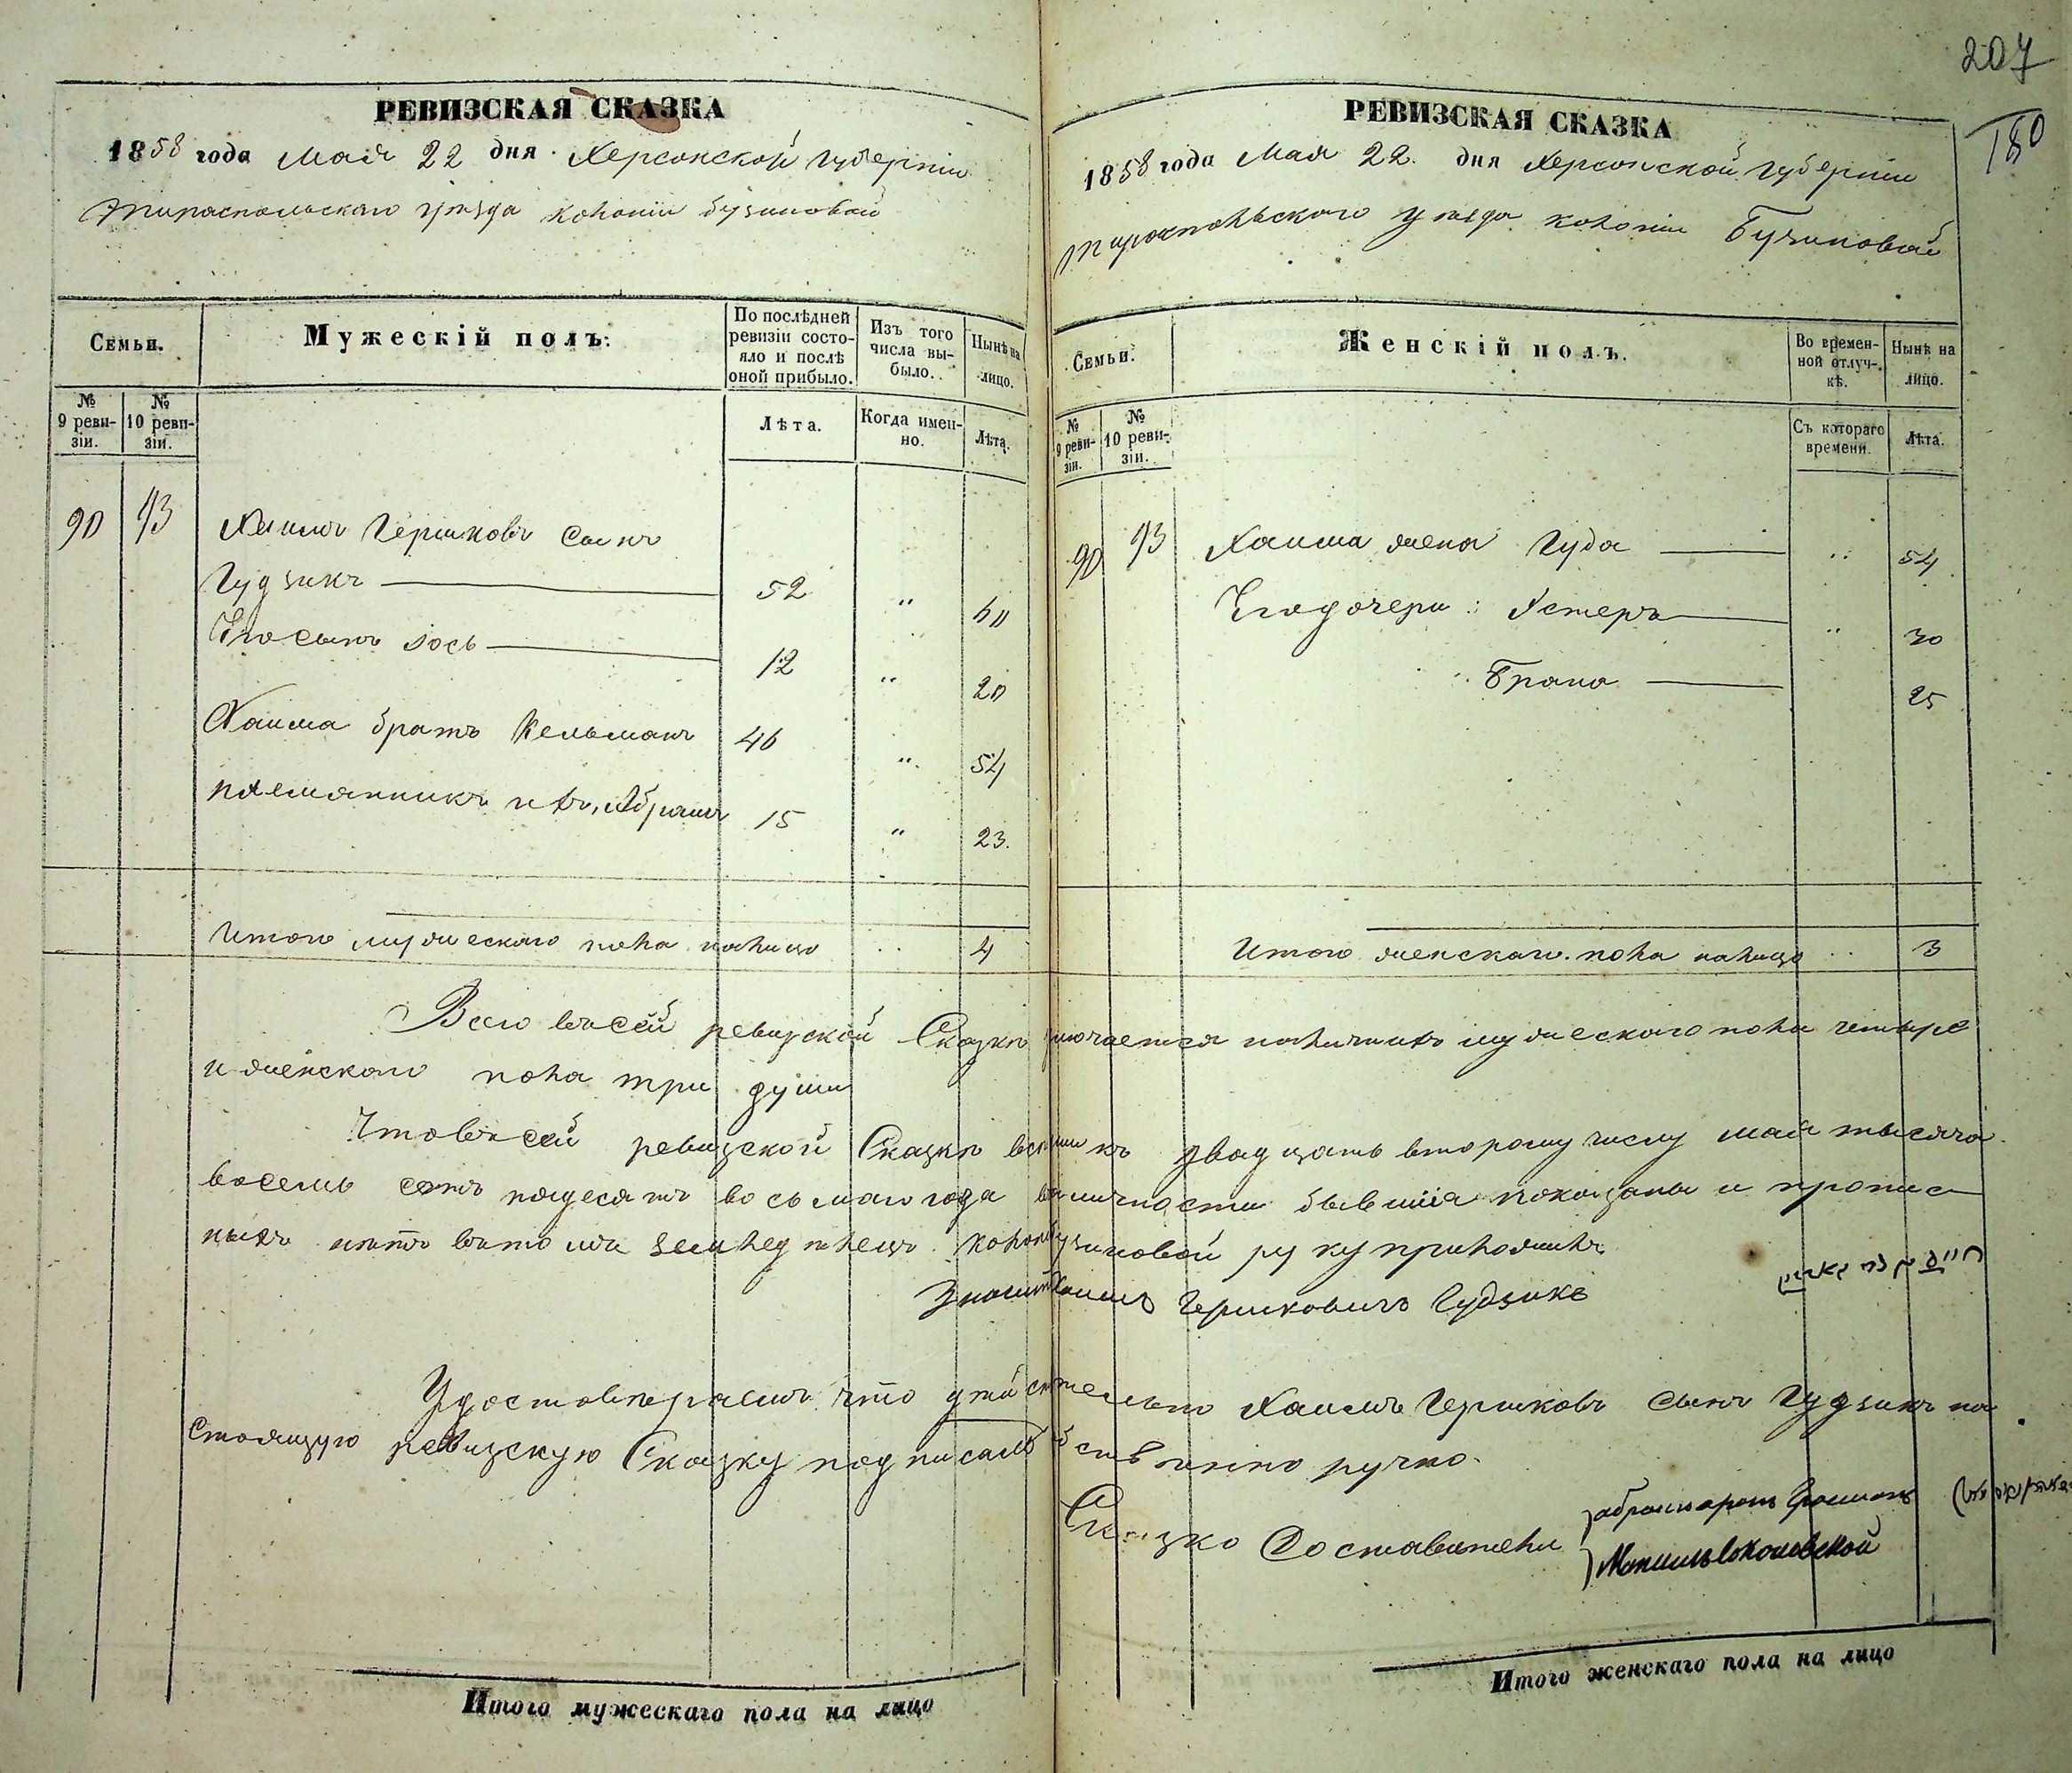 207
180
РЕВИЗСКАЯ СКАЗКА
1858 года Мая 22 дня Херсонской губерніи
Тираспольскаго уѣзда колоніи бузиновой
Семьи.
Мужескій полъ:
По послѣдней ревизіи состояло и послѣ оной прибыло.
Изъ того числа выбыло.
Нынѣ на лицо.
№ 9 ревизіи.
№ 10 ревизіи.
Лѣта.
Когда именно.
Лѣта.
90 93 Хаимъ Гершковъ Сынъ
Гудзикъ 52 " 60
Его сынъ Іось 12 " 20
Хаима братъ Кельманъ 46 " 54
племянникъ ихъ, Абрамъ 15 " 23.
Итого мужескаго пола налицо 4
РЕВИЗСКАЯ СКАЗКА
1858 года Мая 22. дня Херсонской губерніи
Тираспольского уѣзда колоніи Бузиновой
Семьи.
Женскій полъ.
Во временной отлучкѣ.
Нынѣ на лицо.
№ 9 ревизіи.
№ 10 ревизіи.
Съ котораго времени.
Лѣта.
90 93 Хаима жена Гуда " 54
Его дочери: Эстеръ " 30
Брана 25
Итого женскаго пола налицо " 3
Всего въ сей ревизской Сказкѣ заключается мужескаго пола четыре
и женскаго пола три души
Что въ сей ревизской Сказкѣ всѣ къ двадцать второму числу мая тысяча
восемь сотъ пядесятъ восьмаго года въ личности бывшія показаны и пропис
ныхъ нѣтъ въ томъ земледѣлецъ колоніи бузиновой руку приложилъ
Хаимъ Гершковичъ Гудзикъ
Удостовѣряемъ что дѣйствительно Хаимъ Гершковъ сынъ Гудзикъ на
стоящую ревизскую Сказку подписалъ собственно ручно.
Сказко Составители
Итого мужескаго пола на лицо
Итого женскаго пола на лицо